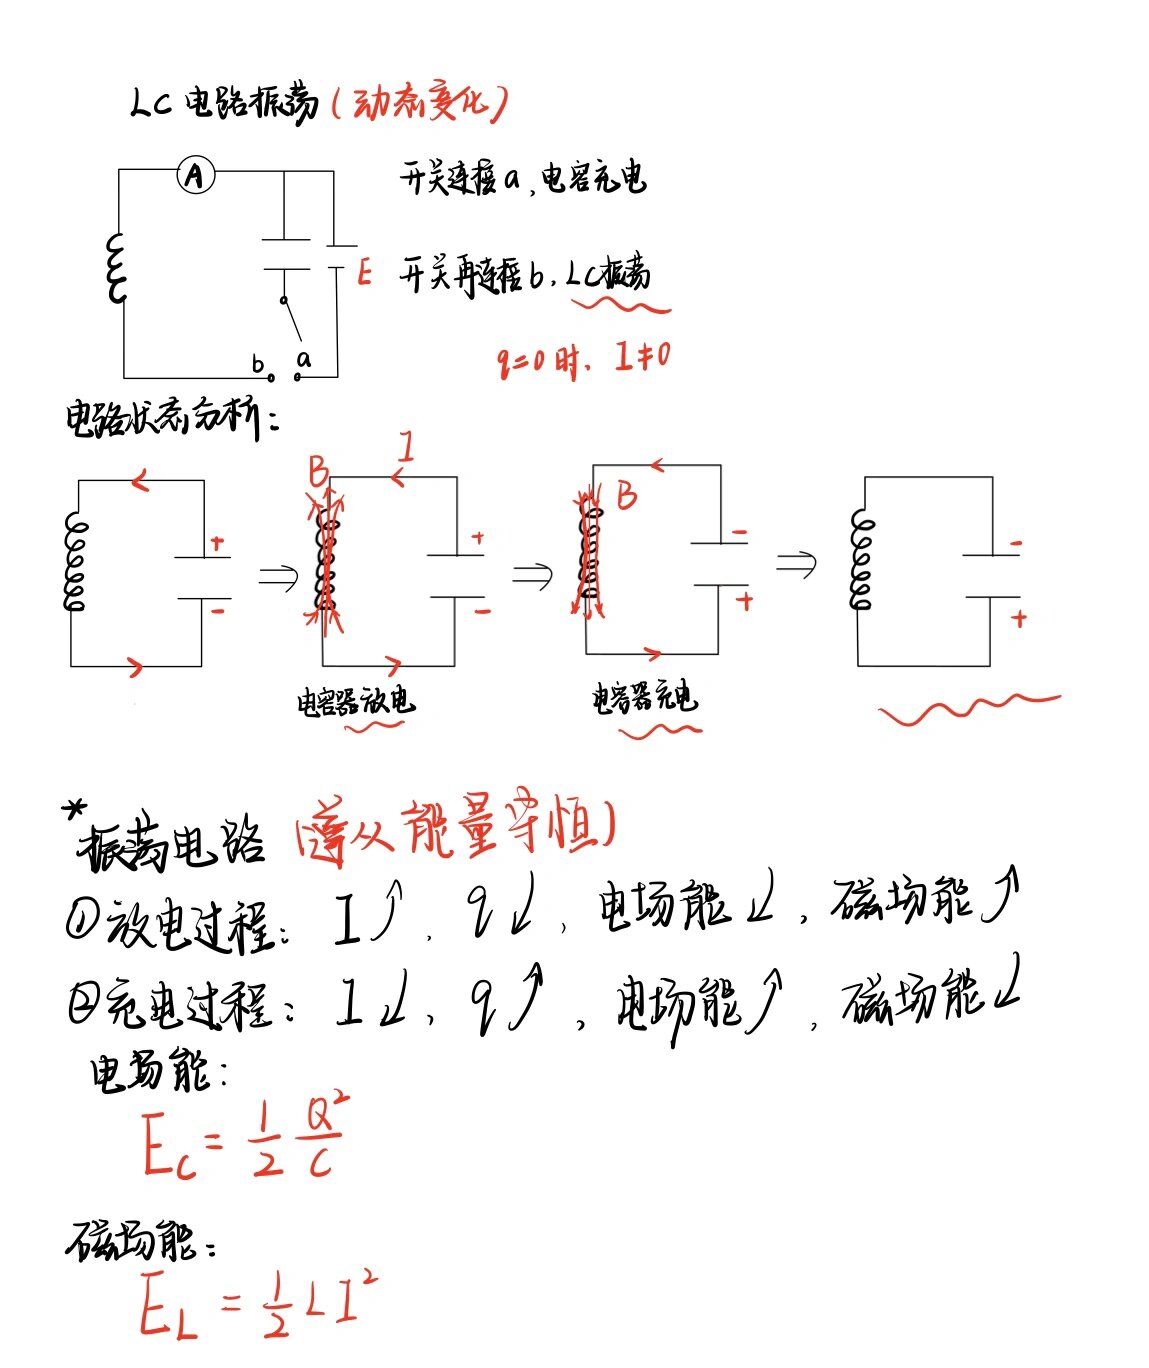 LC电路振荡(动态变化)
A
开关连接a,电容充电
E
开关再连接b,LC振荡
q=0时、I≠0
b a
电路状态分析:
B I
B
+ + - -
- - + +
电容器放电 电容器充电
*振荡电路(遵从能量守恒)
①放电过程:I↗,q↙,电场能↙,磁场能↗
②充电过程:I↙,q↗,电场能↗,磁场能↙
电场能:
E_C=1/2 Q²/C
磁场能:
E_L=1/2LI²